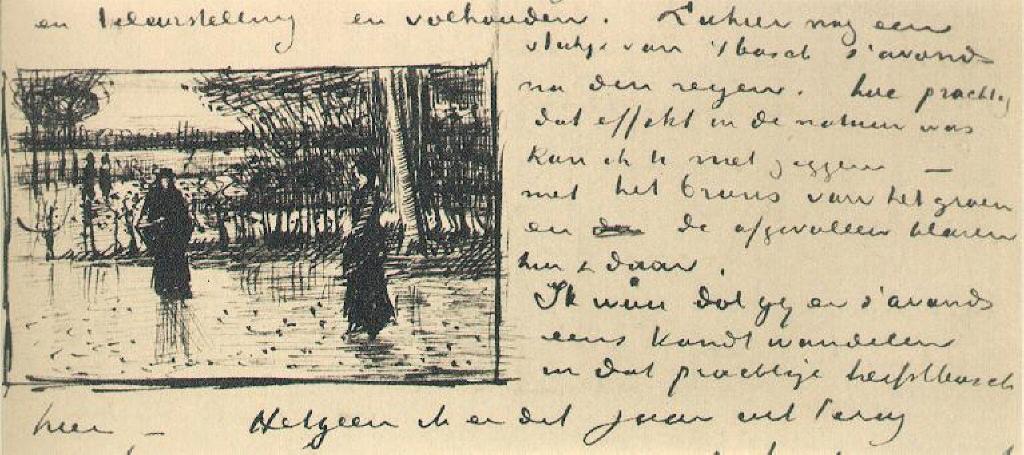 en kleurstelling en volhouden. Ziehier nog een
stukje van 't bosch 's avonds
na den regen. hoe prachtig
dat effekt in de natuur was
kan ik U niet zeggen —
met het brons van het groen
en de afgevallen blaren
hier & daar.
Ik wou dat gy er s'avonds
eens kondt wandelen
in dat prachtige herfstbosch
hier — Hetgeen ik er dit jaar uit